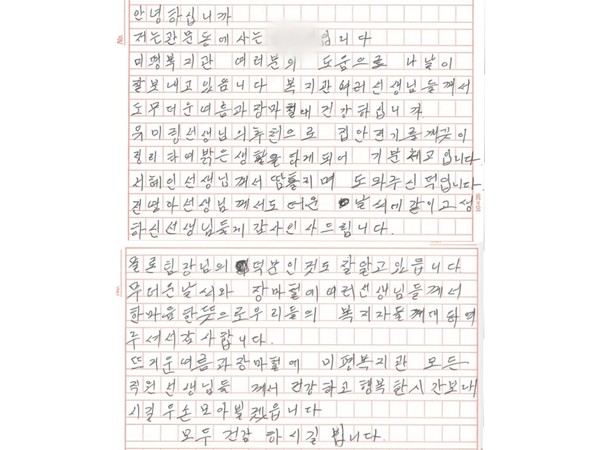 안녕하십니까
저는관문동에사는 입니다
미평복지관 여러분의 도움으로 나날이
잘보내고있읍니다 복지관여러선생님들께서
도무더운여름과장마철에 건강하십니까
유미링선생님의추천으로 집안전기를깨끗이
정리하여밝은생활을하게되어 기분최고입니다
서혜인선생님께서땀흘리며 도와주신덕입니다
권영아선생님께서도더운 날씨에같이고생
하신선생님들게감사인사드립니다.
물론팀장님의 덕분인것도잘알고있읍니다
무더운날씨와 장마철에여러선생님들께서
한마음한뜻으로우리들의 복지자을께대하여
주셔서감사합니다.
뜨거운여름과장마철에 미평복지관 모든
직원선생님들 께서건강하고행복한시간보내
시길우손모아빌겠읍니다
모두건강 하시길 빕니다.